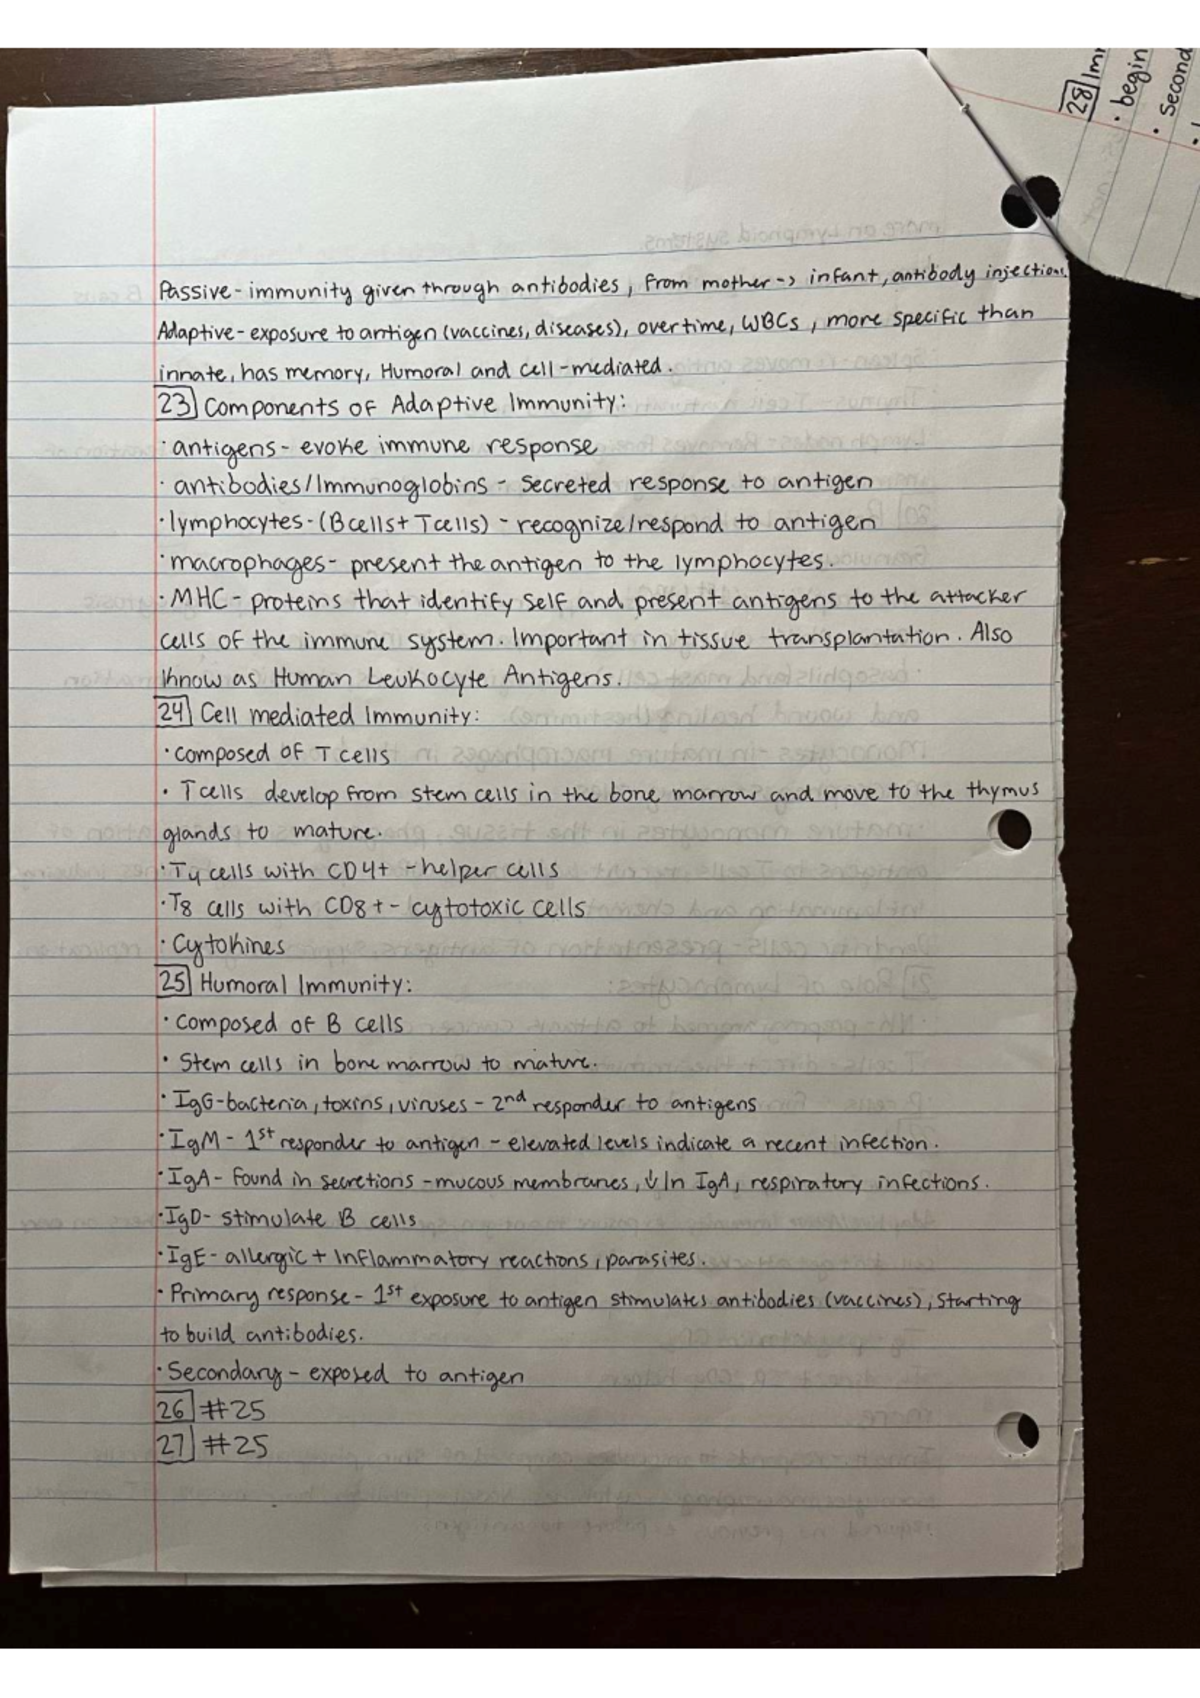 Passive - immunity given through antibodies, from mother -> infant, antibody injections.
Adaptive - exposure to antigen (vaccines, diseases), overtime, WBCs, more specific than
innate, has memory, Humoral and cell-mediated.
23 Components of Adaptive Immunity:
· antigens - evoke immune response
· antibodies/Immunoglobins - Secreted response to antigen
· lymphocytes - (B cells + T cells) - recognize/respond to antigen
· macrophages - present the antigen to the lymphocytes.
· MHC - proteins that identify self and present antigens to the attacker
cells of the immune system. Important in tissue transplantation. Also
Know as Human Leukocyte Antigens.
24 Cell mediated Immunity:
· composed of T cells
· T cells develop from stem cells in the bone marrow and move to the thymus
glands to mature.
· T4 cells with CD4+ - helper cells
· T8 cells with CD8+ - cytotoxic cells
· Cytokines
25 Humoral Immunity:
· Composed of B cells
· Stem cells in bone marrow to mature.
· IgG - bacteria, toxins, viruses - 2nd responder to antigens
· IgM - 1st responder to antigen - elevated levels indicate a recent infection.
· IgA - Found in secretions - mucous membranes, ↓ In IgA, respiratory infections.
· IgD - stimulate B cells
· IgE - allergic + Inflammatory reactions, parasites.
· Primary response - 1st exposure to antigen stimulates antibodies (vaccines), Starting
to build antibodies.
· Secondary - exposed to antigen
26 #25
27 #25
28 Imm
· begin
· Second